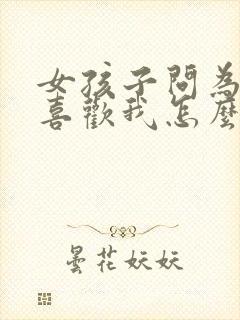 女孩子問為
喜歡我怎麼
曇花妖妖